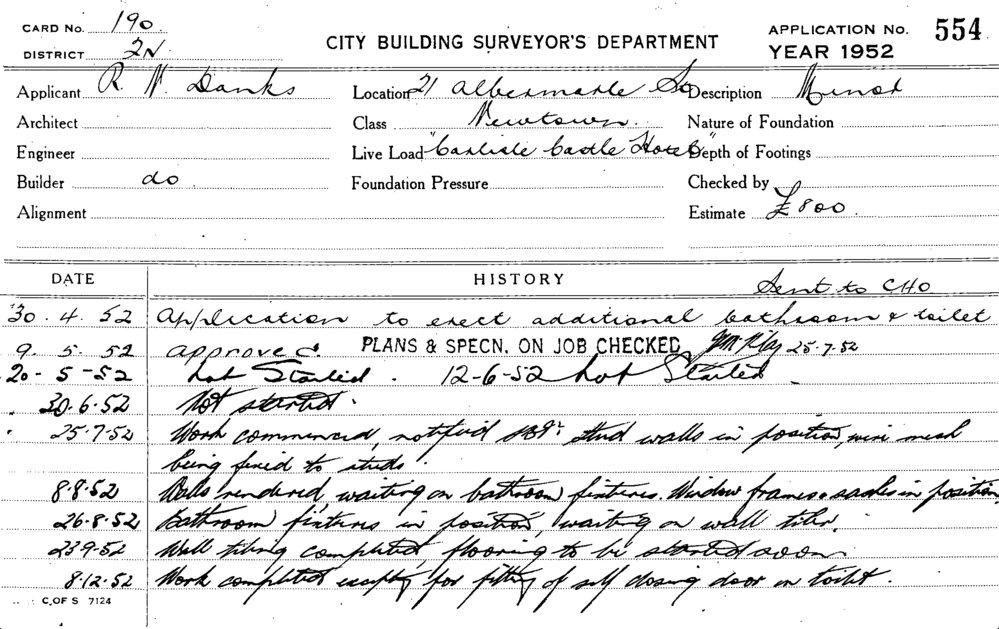 CARD No. 190
DISTRICT 2N
CITY BUILDING SURVEYOR'S DEPARTMENT
APPLICATION No. 554
YEAR 1952
Applicant R. W. Danks Location 21 Albermarle St Description Minor
Architect Class Newtown. Nature of Foundation
Engineer Live Load "Carlisle Castle Hotel" Depth of Footings
Builder do Foundation Pressure Checked by
Alignment Estimate £800
DATE HISTORY Sent to CHO
30.4.52 Application to erect additional bathroom & toilet
9.5.52 Approved. PLANS & SPECN. ON JOB CHECKED 25.7.52
20-5-52 Not Started. 12-6-52 Not Started
30.6.52 Not started.
25.7.52 Work commenced, notified stud walls in position, wire mesh
being fixed to studs.
8.8.52 Walls rendered, waiting on bathroom fixtures. Window frames & sashes in position
26.8.52 Bathroom fixtures in position, waiting on wall tiler.
23.9.52 Wall tiling completed, flooring to be started soon
8.12.52 Work completed except for fitting of self closing door in toilet.
C. OF S 7124